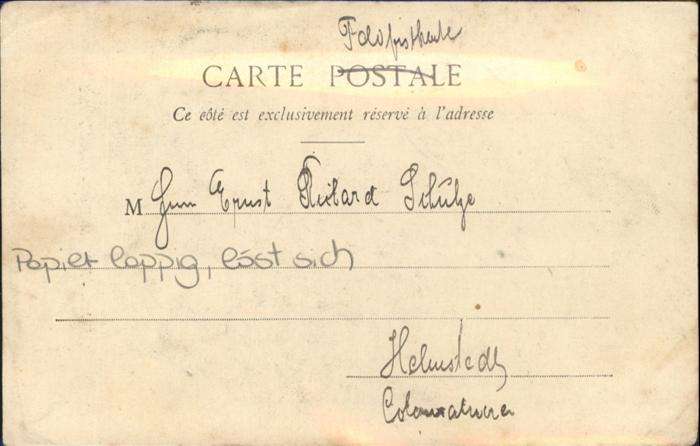 Feldpostkarte
CARTE POSTALE
Ce côté est exclusivement réservé à l'adresse
M Herrn Ernst Richard Schütze
Papier lappig, löst sich
Helmstedt